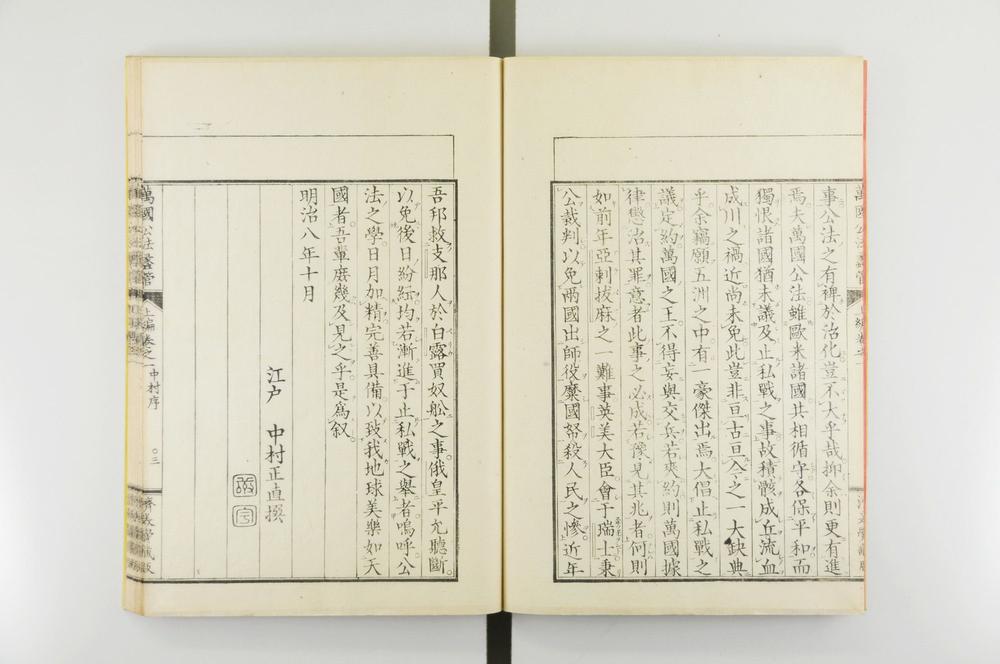 事公法之有裨於治化豈不大乎哉抑余則更有進
焉夫萬國公法雖歐米諸國其相循守各保平和而
獨恨諸國猶未議及止私戰之事故積骸成丘流血
成川之禍近尚未免此豈非亘古亘今之一大缺典
乎余竊願五洲之中有一豪傑出焉大倡止私戰之
議定約萬國之王不得妄與交兵若爽約則萬國據
律懲治其罪意者此事之必成若豫見其兆者何則
如前年亞剌拔麻之一難事英美大臣會于瑞士秉
公裁判以免兩國出師役糜國帑殺人民之慘近年
吾邦救支那人於白露買奴舩之事俄皇平允聽斷
以免後日紛紜均若漸進于止私戰之舉者嗚呼公
法之學日月加精完善具備以致我地球美樂如天
國者吾輩庶幾及見之乎是爲叙
明治八年十月
江戸 中村正直撰
萬國公法蠡管
上編卷之一
中村序
〇三